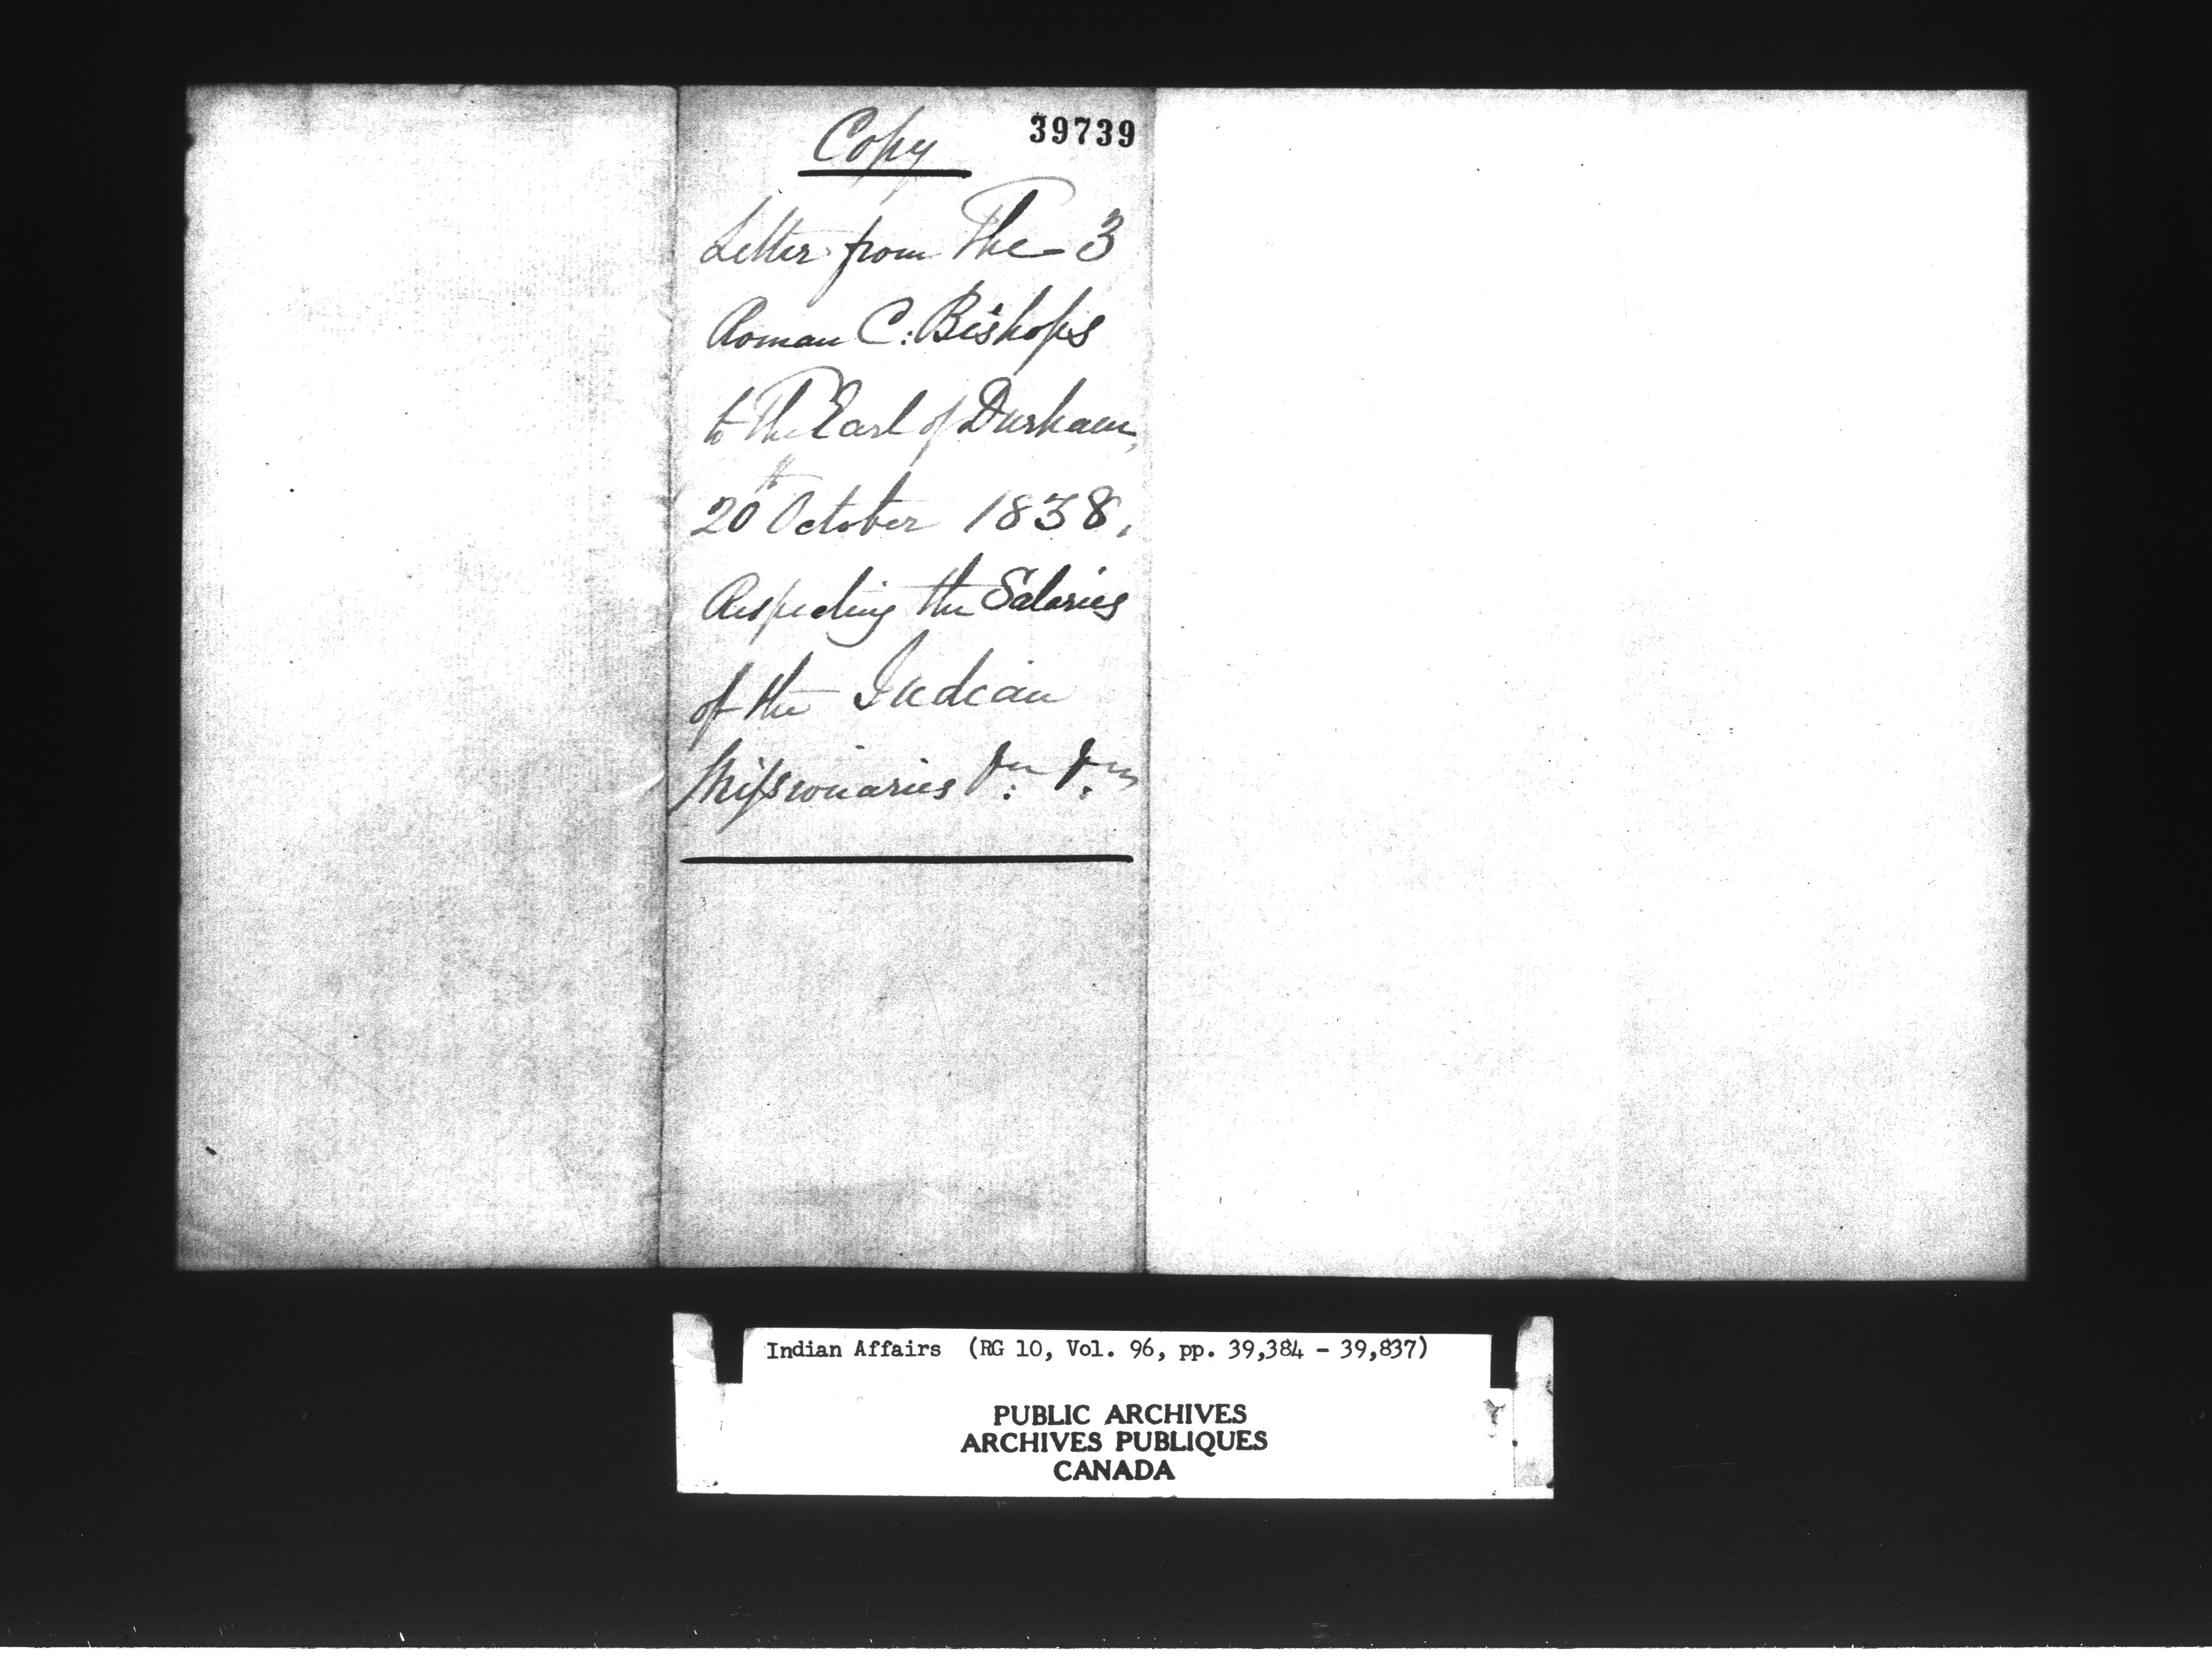 Copy
39739
Letter from The 3
Roman C: Bishops
to The Earl of Durham,
20th October 1838,
Respecting the Salaries
of the Indian
Missionaries
Indian Affairs (RG 10, Vol. 96, pp. 39,384 - 39,837)
PUBLIC ARCHIVES
ARCHIVES PUBLIQUES
CANADA